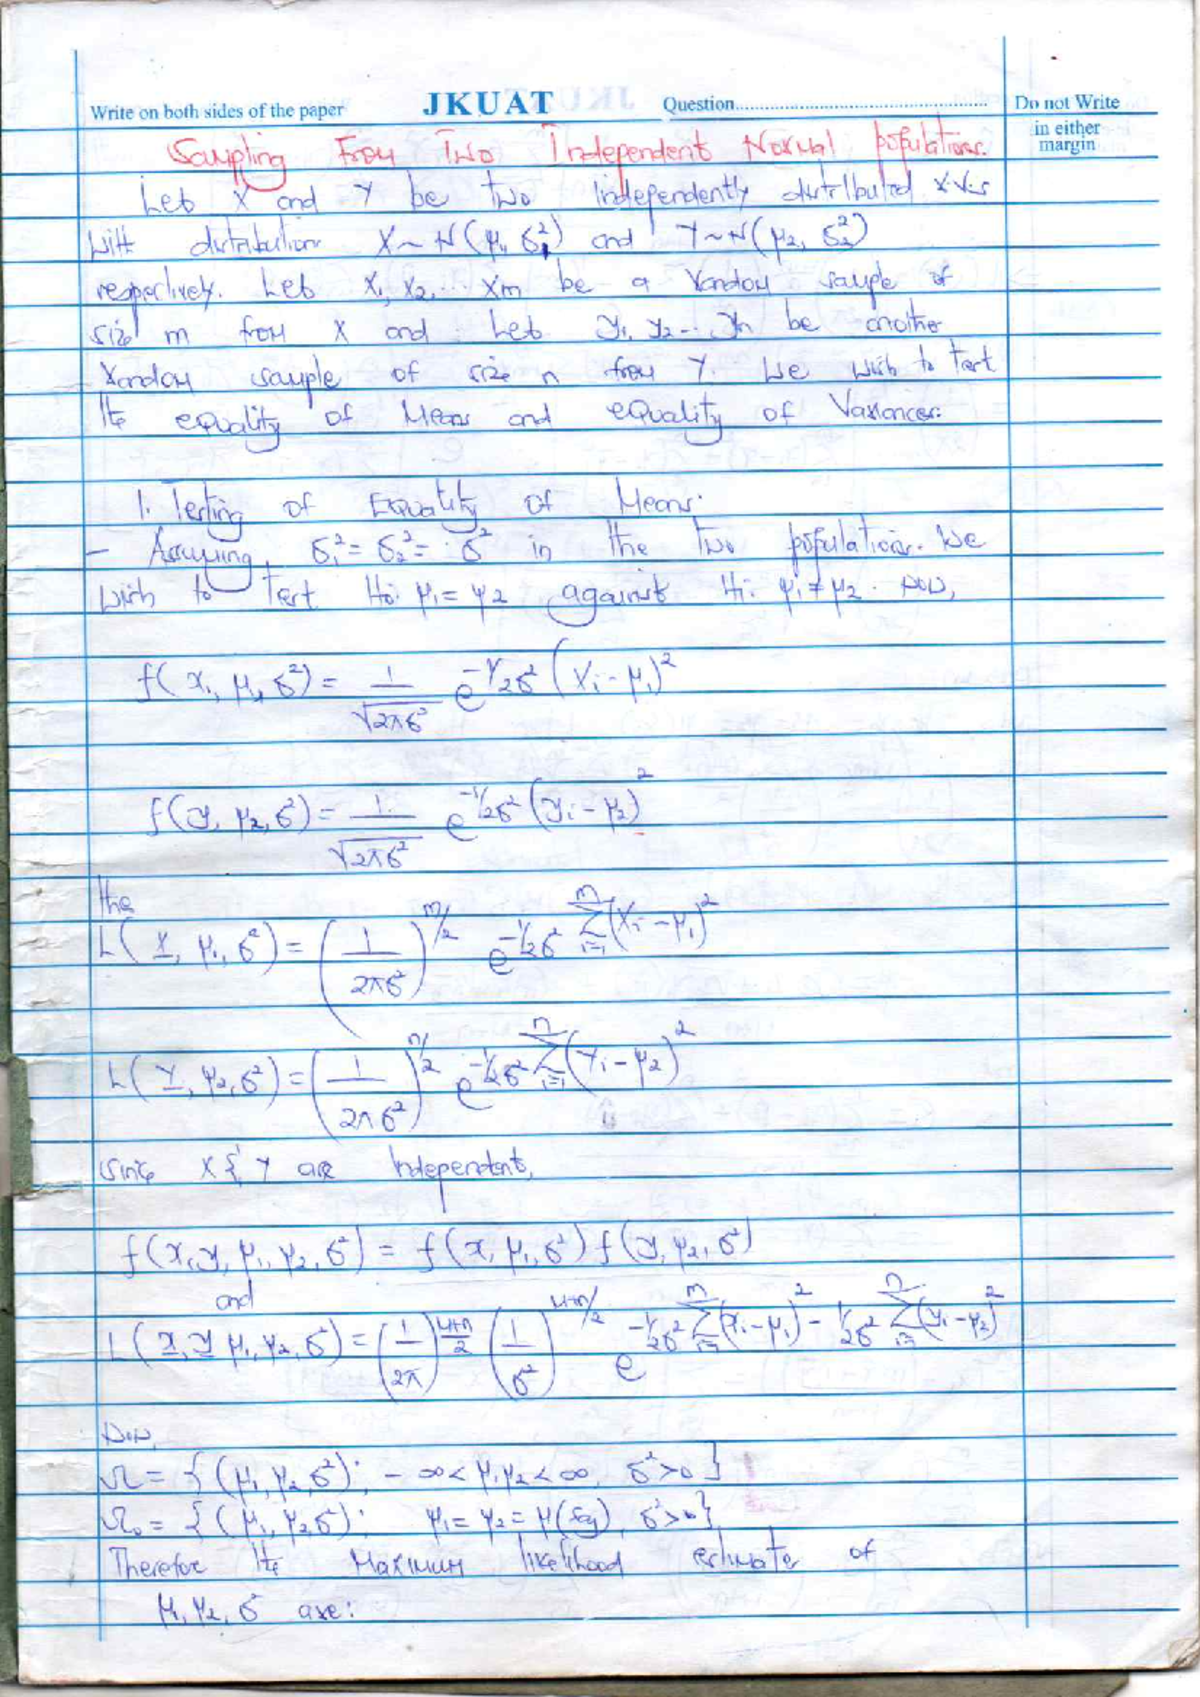 Write on both sides of the paper JKUAT Question........................ Do not Write
in either
margin
Sampling From Two Independent Normal populations.
Let X and Y be two independently distributed r.v.s
with distribution X ~ N(μ₁, σ₁²) and Y ~ N(μ₂, σ₂²)
respectively. Let X₁, X₂, ... Xm be a random sample of
size m from X and let y₁, y₂ ... yn be another
random sample of size n from Y. We wish to test
the equality of Means and equality of Variances.
1. Testing of Equality of Means.
– Assuming σ₁² = σ₂² = σ² in the two populations. We
wish to test H₀: μ₁ = μ₂ against H₁: μ₁ ≠ μ₂. Now,
f(xᵢ, μ₁, σ²) = 1/√(2πσ²) e^(-1/2σ² (xᵢ - μ₁)²)
f(y, μ₂, σ²) = 1/√(2πσ²) e^(-1/2σ² (yᵢ - μ₂)²)
the
L(x, μ₁, σ²) = (1/2πσ²)^(m/2) e^(-1/2σ² Σᵢ₌₁ᵐ (xᵢ - μ₁)²)
L(y, μ₂, σ²) = (1/2πσ²)^(n/2) e^(-1/2σ² Σᵢ₌₁ⁿ (yᵢ - μ₂)²)
since X & Y are independent,
f(x, y, μ₁, μ₂, σ²) = f(x, μ₁, σ²) f(y, μ₂, σ²)
and
L(x, y μ₁, μ₂, σ²) = (1/2π)^((m+n)/2) (1/σ²)^(m+n/2) e^(-1/2σ² Σᵢ₌₁ᵐ (xᵢ - μ₁)² - 1/2σ² Σᵢ₌₁ⁿ (yᵢ - μ₂)²)
Now,
Ω = {(μ₁, μ₂, σ²); -∞ < μ₁ μ₂ < ∞, σ² > 0}
Ω₀ = {(μ₁, μ₂ σ²): μ₁ = μ₂ = μ (say), σ² > 0}
Therefor the Maximum likelihood estimate of
μ₁, μ₂, σ² are: